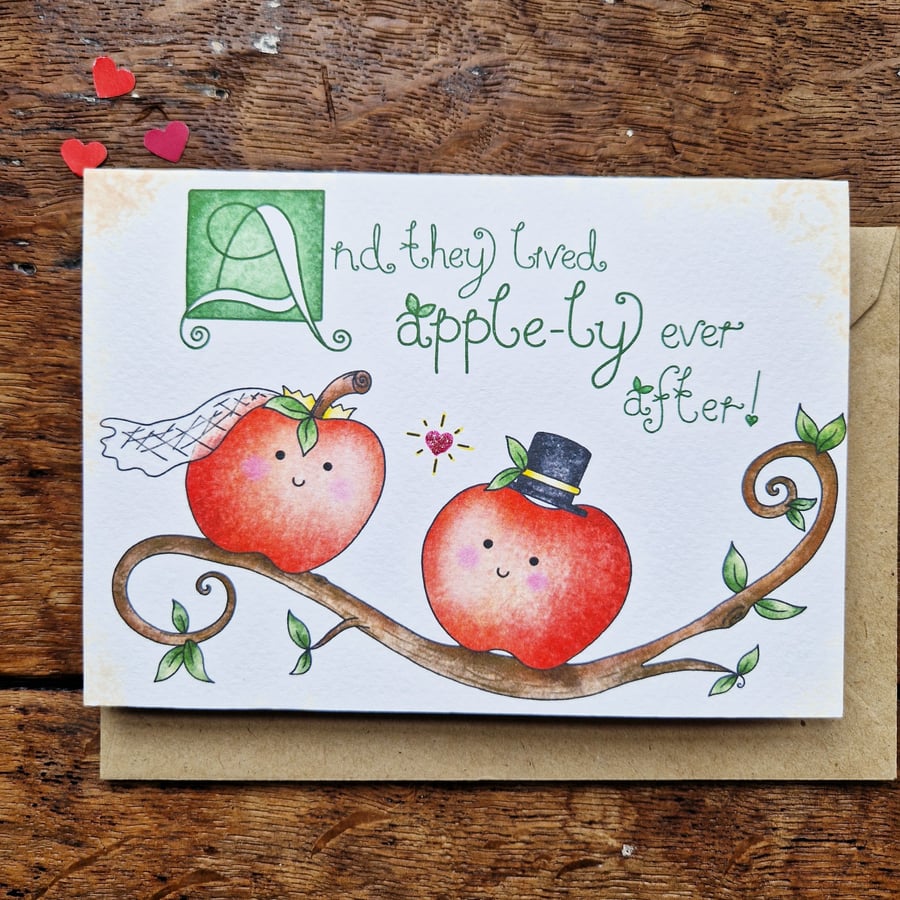 And they lived
apple-ly ever
after!